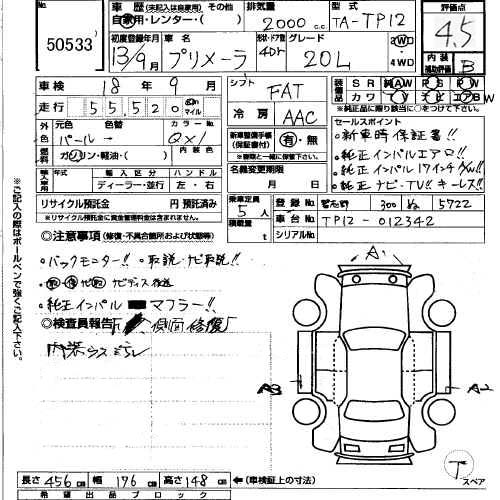 No.
50533
車歴 (未記入は自家用) その他
自家用・レンター・( )
排気量
2000 c.c.
型式
TA-TP12
評価点
4.5
初度登録年月
13/9月
車名
プリメーラ
形状・ドア数
4Dr
グレード
20L
2WD
4WD
内装
補助評価
B
車検 18年 9月
シフト
FAT
装備品
SR 純AW PS PW
カワ TV ナビ エアB
※純正品に限り該当に○をつけて下さい
走行 55,520 Km マイル
冷房
AAC
セールスポイント
・新車時保証書!!
・純正インパルエアロ!!
・純正インパル17インチAW!!
・純正ナビ・TV!! キーレス!!
外色
元色 色替
カラーNo.
内装色
パール→
QX1
新車整備手帳
(保証書付)
有・無
※車検と一緒に保管下さい。
燃料
ガソリン・軽油・( )
名義変更期限
月 日
年式 輸入区分 ハンドル
ディーラー・並行 左・右
リサイクル預託金 円 預託済み
※リサイクル預託金に資金管理料金は含まれません。
乗車定員
5人
積載量
t
登録No. 習志野 300 ぬ 5722
車台No. TP12-012342
シリアルNo.
◎注意事項 (修復・不具合箇所および状態等)
・バックモニター!! ・取説・ナビ取説!!
純正インパル マフラー!!
◎検査員報告
内装
A1
A2
※ご記入の際はボールペンで強くご記入下さい。
スペア
長さ 456cm 幅 176cm 高さ 148cm ←(車検証上の寸法)
希望出品ブロック